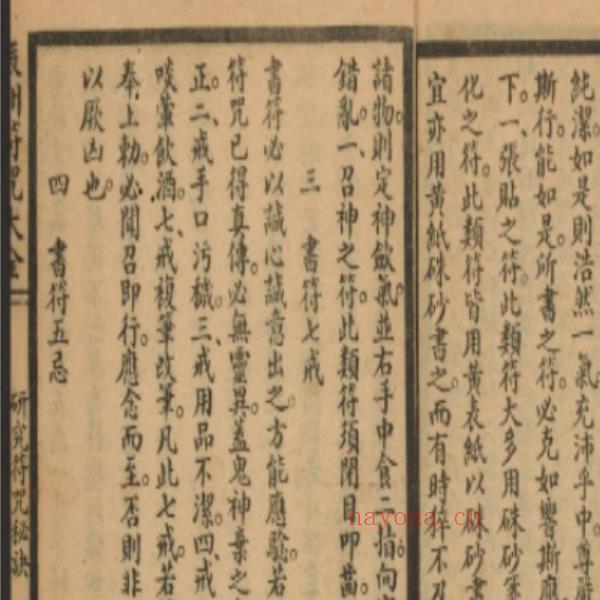 純潔。如是則浩然一氣。充沛乎中。尊嚴
斯行。能如是。所書之符。必克如響斯應
下。一、張貼之符。此類符大多用硃砂筆
化之符。此類符皆用黃表紙以硃砂書
宜亦用黃紙硃砂書之。而有時
諸物。則定神斂氣。並右手中食二指。向
錯亂。一、召神之符。此類符須閉目叩齒
三 書符七戒
書符必以誠心誠意出之。方能應驗。若
符咒已得真傳。必無靈異。蓋鬼神棄之
正。二、戒手口污穢。三、戒用品不潔。四、戒
啖葷飲酒。七、戒複筆改筆。凡此七戒。若
奉上勅。必聞召即行。應念而至。否則非
以厥凶也。
四 書符五忌
符咒大全
研究符咒秘訣
nayona.cn